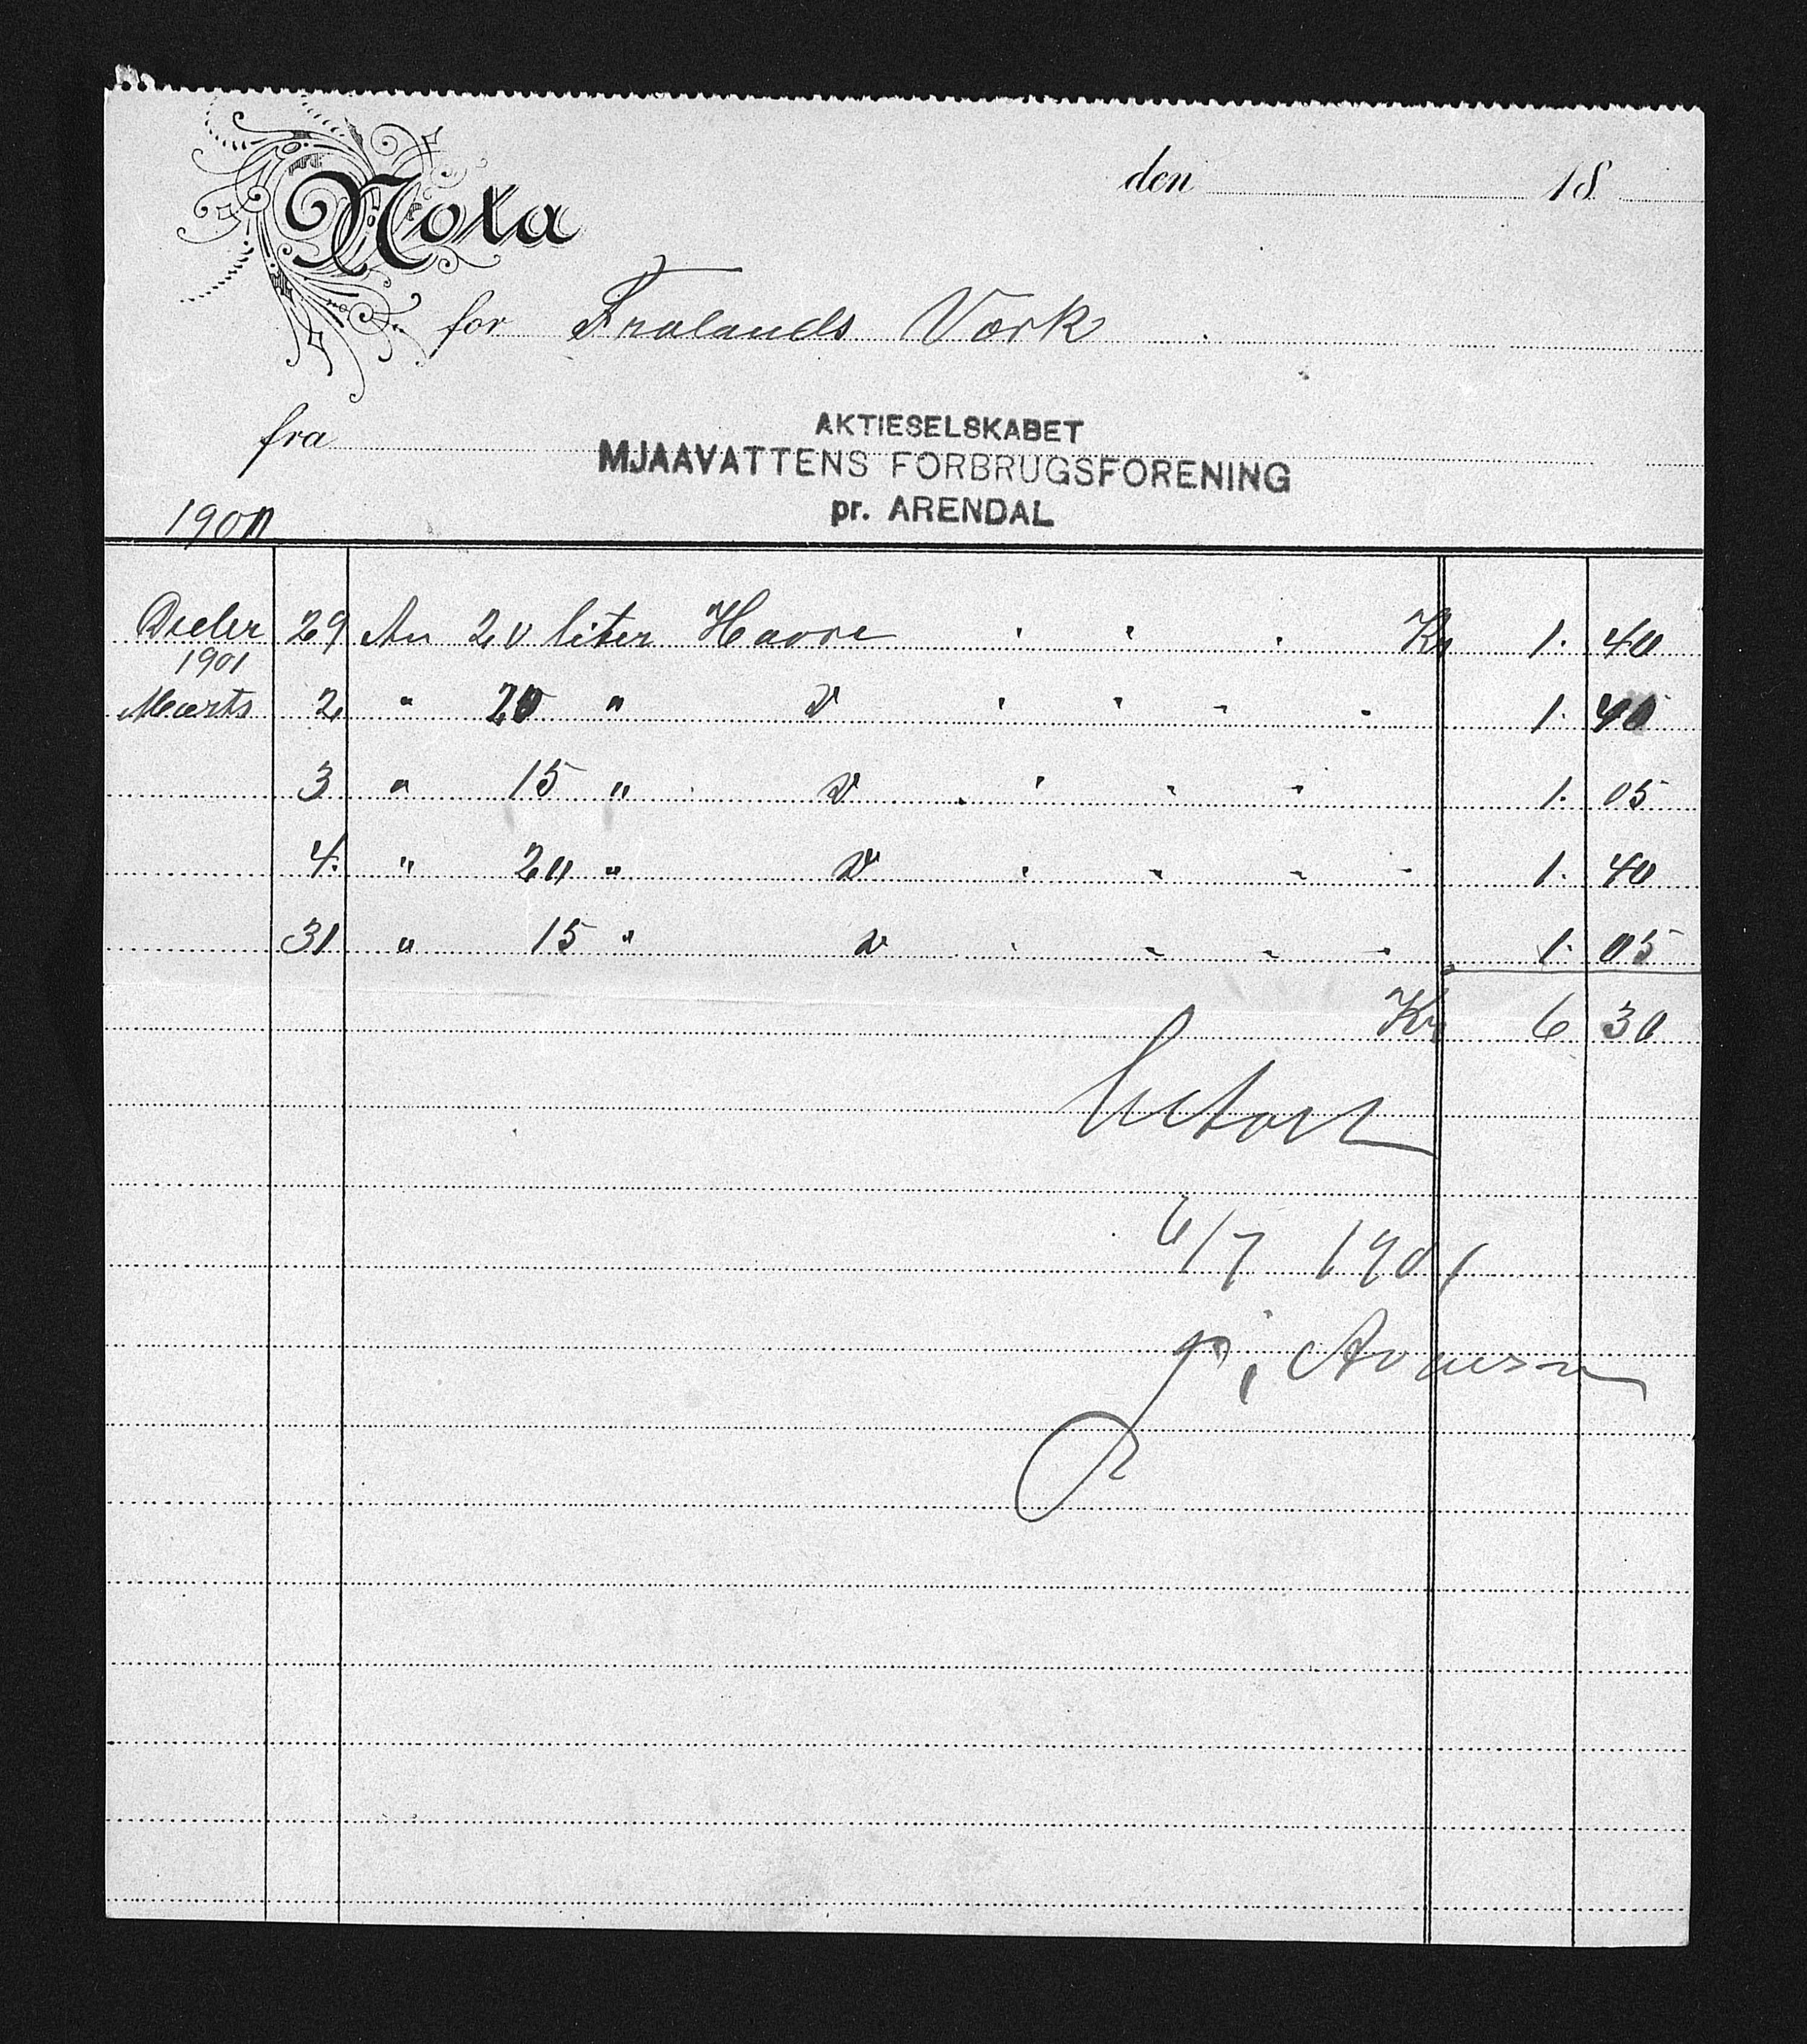 Nota
den 18
for Frolands Værk
fra
AKTIESELSKABET
MJAAVATTENS FORBRUGSFORENING
pr. ARENDAL
1900
Decbr 29 An 20 liter Havre Kr 1. 40
1901
Marts 2 " 20 " D 1. 40
3 " 15 " D 1. 05
4. " 20 " D 1. 40
31 " 15 " D 1. 05
Kr 6 30
6/7 1901